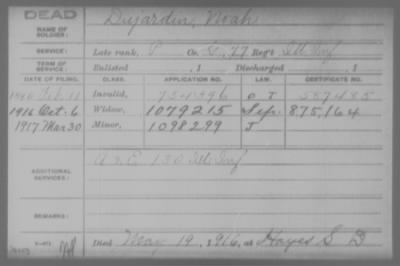 DEAD
NAME OF SOLDIER: Dujardin, Noah
SERVICE: Late rank, P Co. G, 77 Reg't Ill Inf
TERM OF SERVICE: Enlisted , 1 Discharged , 1
DATE OF FILING. CLASS. APPLICATION NO. LAW. CERTIFICATE NO.
1890 Feb. 11 Invalid, O J
1916 Oct. 6 Widow, 1079215 Sepr. 875,164
1917 Mar 30 Minor, 1098299 J
ADDITIONAL SERVICES: 130 Ill. Inf
REMARKS:
Died May 19, 1916, at Hayes S D